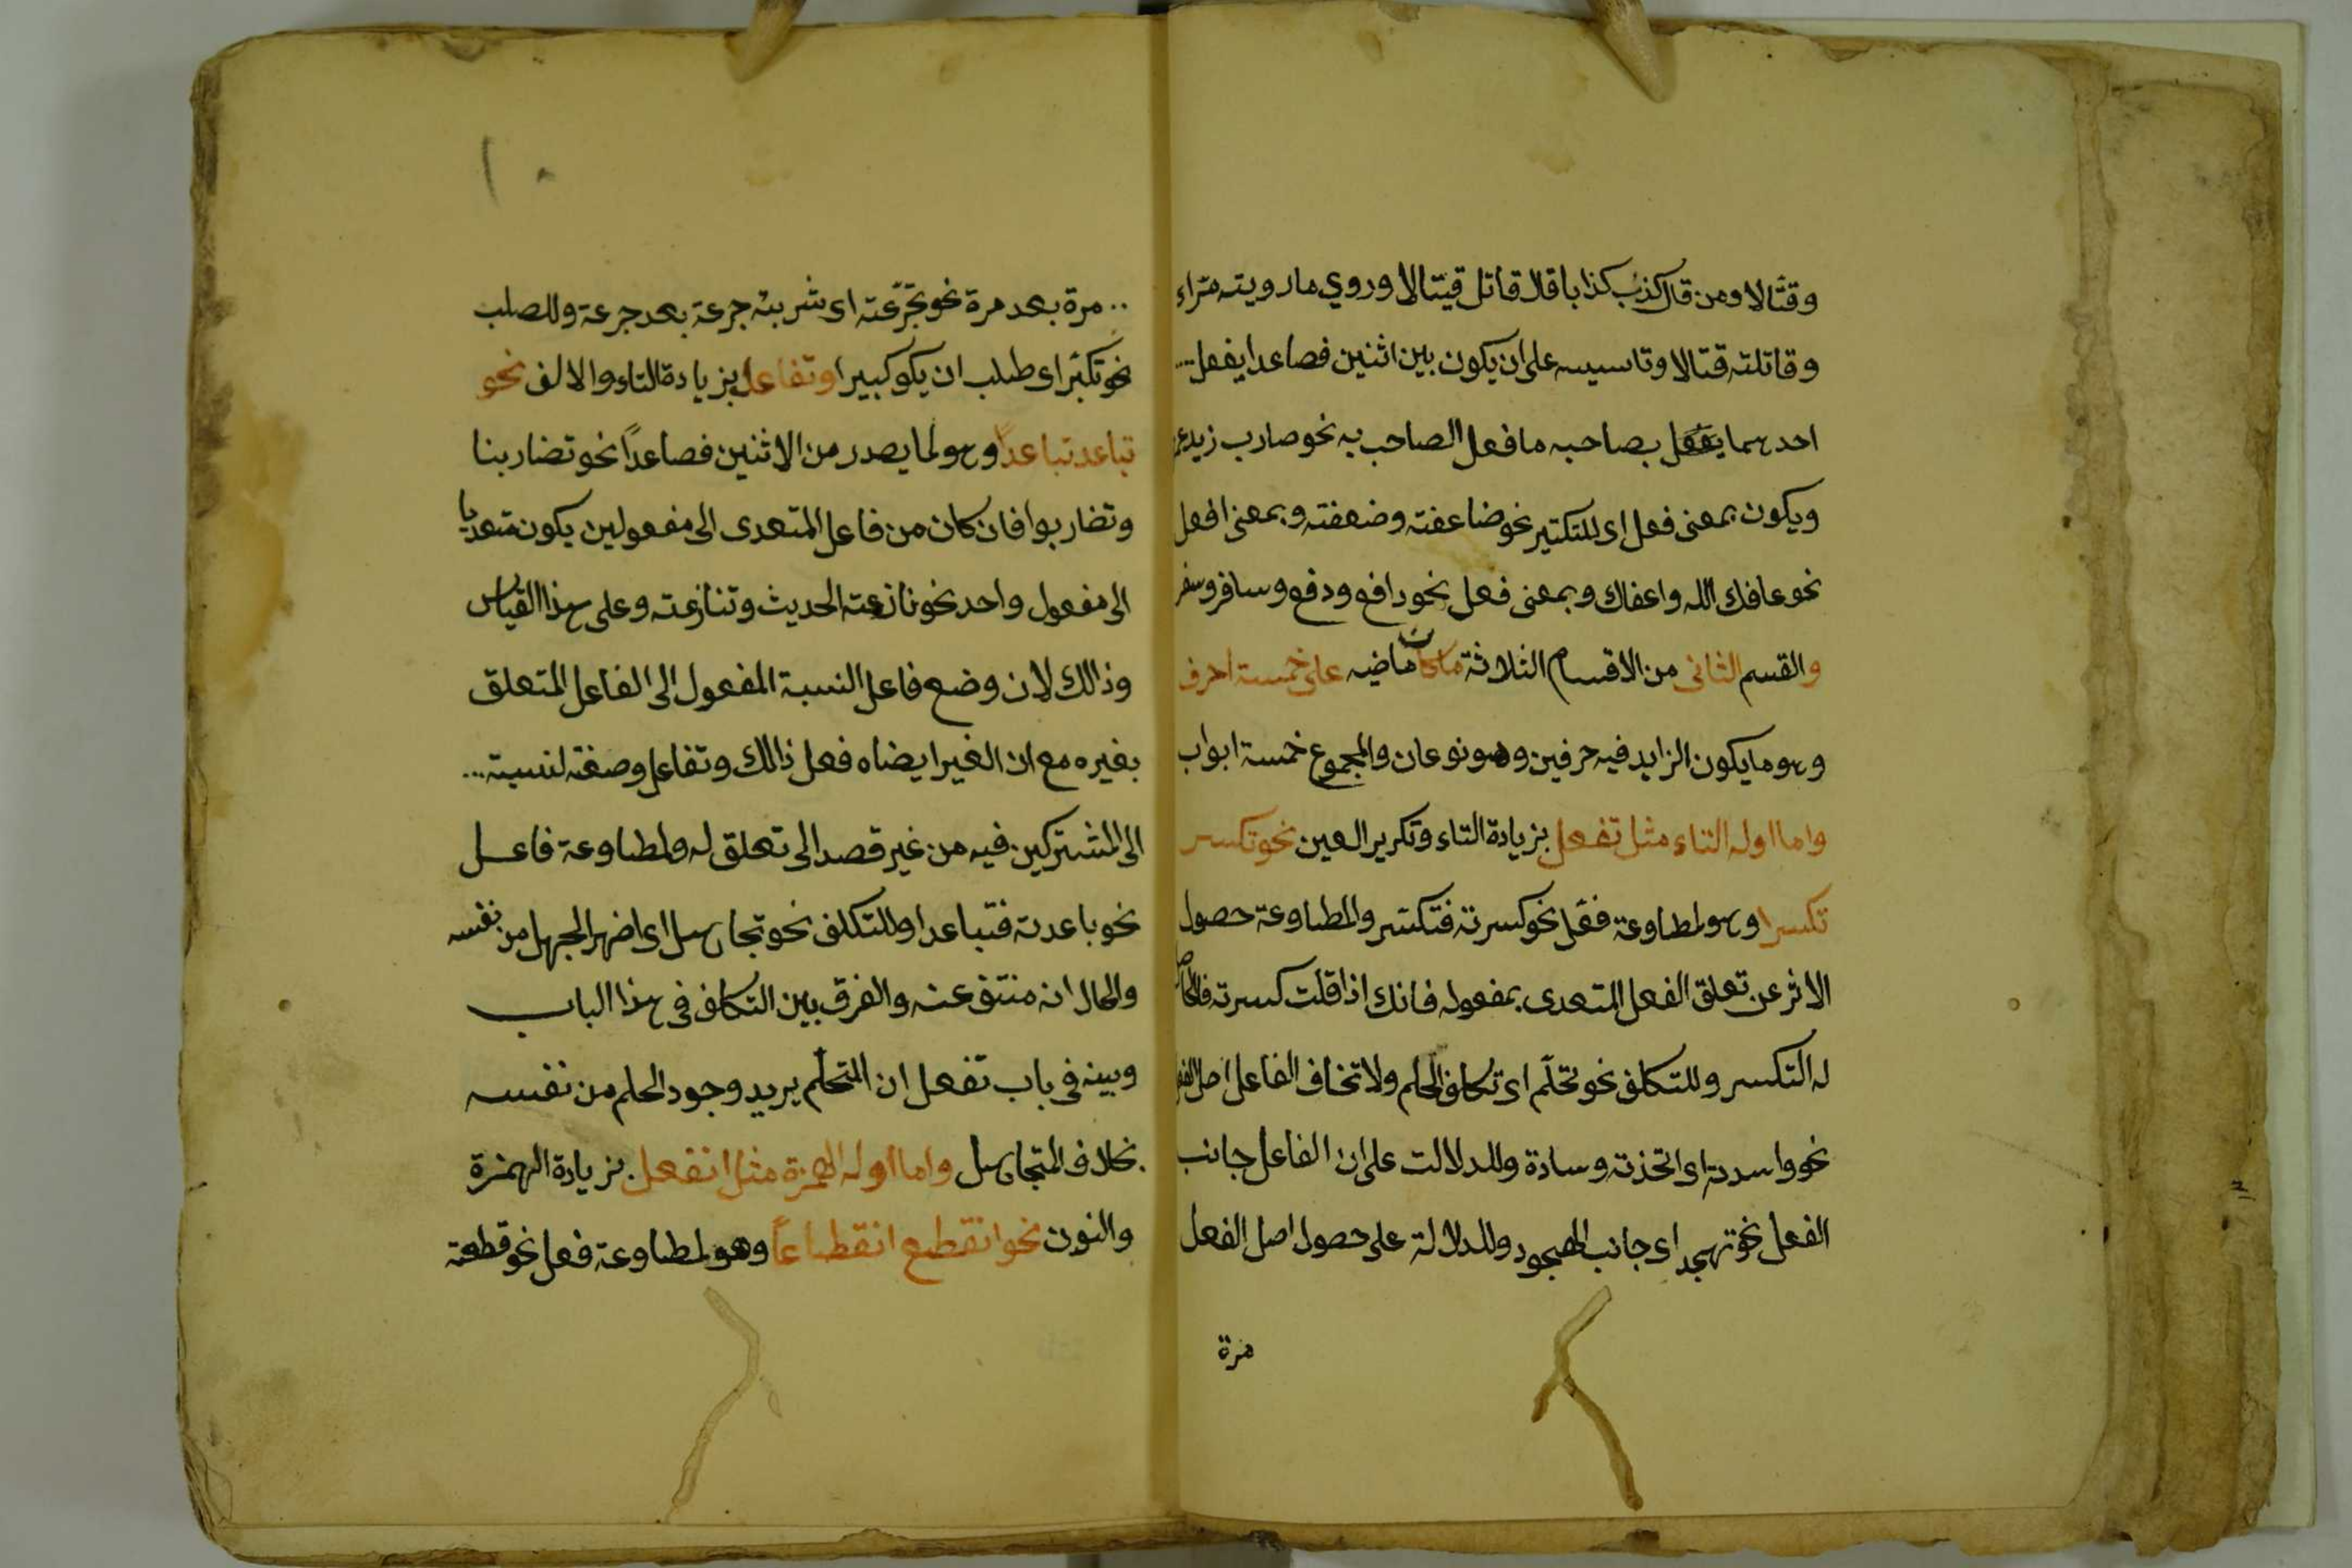 وقتّالا ومن قال كذب كذابا قال قاتل قيتالا وروي ماريته مرّاء
وقاتلته قتالا وتاسيسه على ان يكون بين اثنين فصاعدا يفعل
احدهما يفعل بصاحبه ما فعل الصاحب به نحو ضارب زيد عمر
ويكون بمعنى فعل اى للتكثير نحو ضاعفته وضعفته وبمعنى افعل
نحو عافك الله واعفاك وبمعنى فعل نحو دافع ودفع وسافر وسفر
والقسم الثانى من الاقسام الثلاثة ما كان ماضيه على خمسة احرف
وهو ما يكون الزايد فيه حرفين وهو نوعان والمجموع خمسة ابواب
واما اوله التاء مثل تفعل بزيادة التاء وتكرير العين نحو تكسر
تكسرا وهو لمطاوعة فعّل نحو كسرته فتكسّر والمطاوعة حصول
الاثر عن تعلق الفعل المتعدى بمفعوله فانك اذا قلت كسرته فالحاصل
له التكسر وللتكلف نحو تحلّم اى تكلف الحلم ولاتخاف الفاعل اصل الفعل
نحو واسدته اى اتخذته وسادة وللدلالت على ان الفاعل جانب
الفعل نحو تهجد اى جانب الهجود وللدلالة على حصول اصل الفعل
مرة
١٠
مرة بعد مرة نحو تجرّعته اى شربته جرعة بعد جرعة وللصلب
نحو تكبّر اى طلب ان يكو كبيرا وتفاعل بزيادة التاء والالف نحو
تباعد تباعداً وهو لما يصدر من الاثنين فصاعداً نحو تضاربنا
وتضاربوا فان كان من فاعل المتعدى الى مفعولين يكون متعديا
الى مفعول واحد نحو نازعته الحديث وتنازعته وعلى هذا القياس
وذالك لان وضع فاعل النسبة المفعول الى الفاعل المتعلق
بغيره مع ان الغير ايضاه فعل ذالك وتفاعل وصفته لنسبته
الى المشتركين فيه من غير قصد الى تعلق له ولمطاوعة فاعل
نحو باعدته فتباعدا وللتكلف نحو تجاهل اى اضهر الجهل من نفسه
والحال انه منتف عنه والفرق بين التكلف فى هذا الباب
وبينه فى باب تفعل ان المتحلّم يريد وجود الحلم من نفسه
بخلاف المتجاهل واما اوله الهمزة مثل انفعل بزيادة الهمزة
والنون نحو انقطع انقطاعاً وهو لمطاوعة فعل نحو قطعته